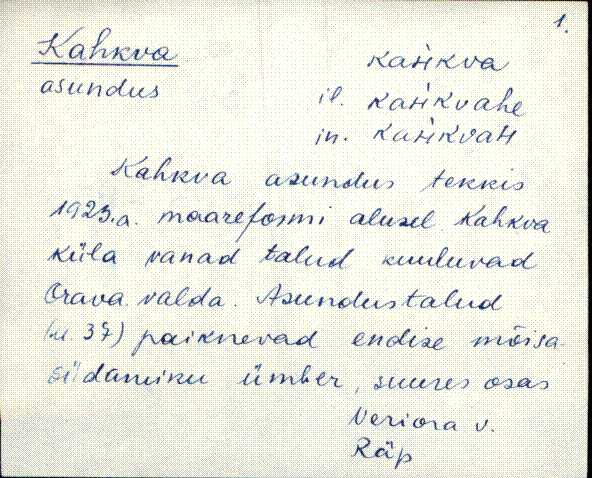 1.
Kahkva
asundus
kaʜkva
il. kaʜkvahe
in. kaʜkvaʜ
Kahkva asundus tekkis
1923.a. maareformi alusel. Kahkva
küla vanad talud kuuluvad
Orava valda. Asundustalud
37) paiknevad endise mõisa
südamiku ümber, suures osas
Veriora v.
Räp